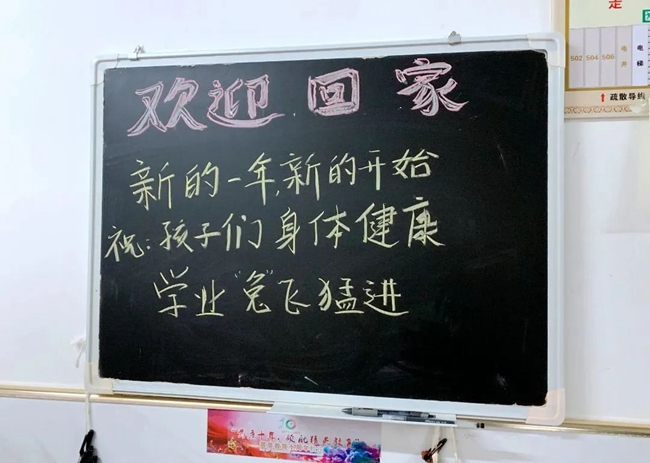 欢迎回家
新的一年,新的开始
祝:孩子们身体健康
学业"兔"飞猛进
走
502 504 506 电井 电梯
↑疏散导约